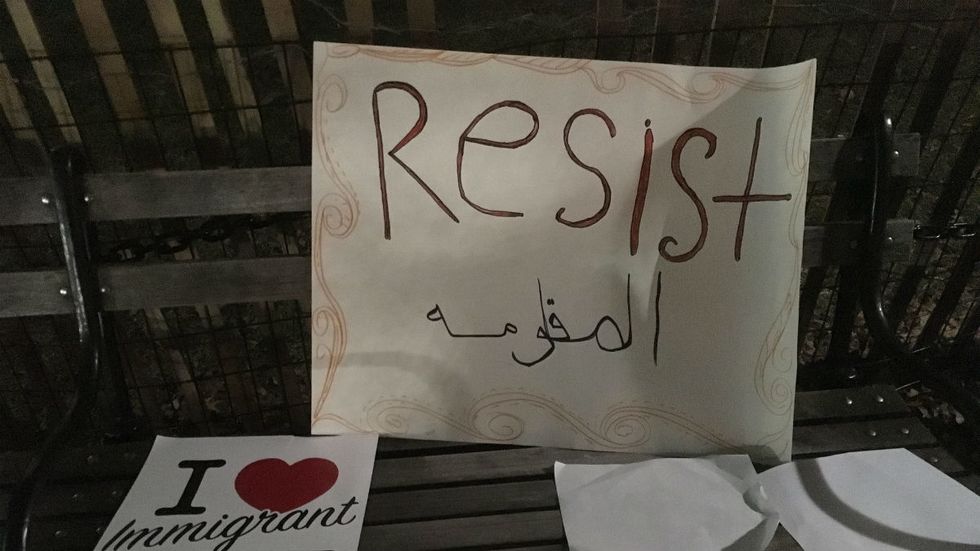 Resist
المقاومه
I ❤
Immigrant